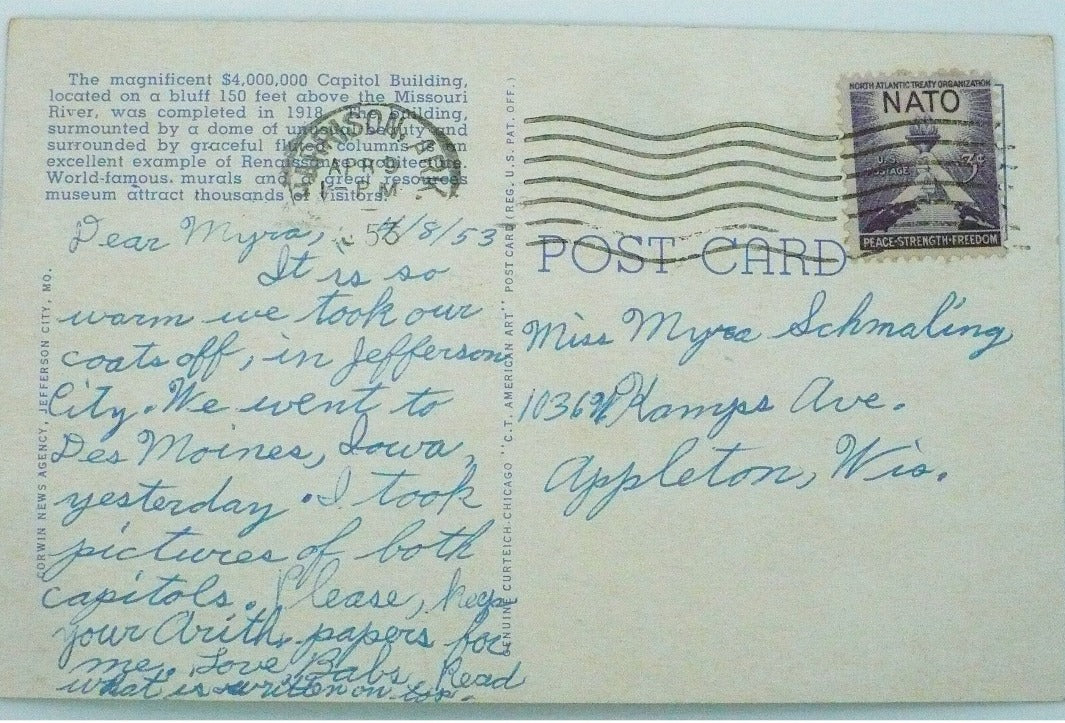 The magnificent $4,000,000 Capitol Building,
located on a bluff 150 feet above the Missouri
River, was completed in 1918. The building,
surmounted by a dome of unusual beauty and
surrounded by graceful columns is an
excellent example of Renaissance architecture.
World-famous murals and a great resources
museum attract thousands of visitors.
Dear Myra, 4/8/53
It is so
warm we took our
coats off, in Jefferson
City. We went to
Des Moines, Iowa,
yesterday. I took
pictures of both
capitols. Please, keep
your Arith. papers for
me. Love Babs. Read
what is written on top.
CORWIN NEWS AGENCY, JEFFERSON CITY, MO.
GENUINE CURTEICH-CHICAGO "C.T. AMERICAN ART" POST CARD (REG. U.S. PAT. OFF.)
APR 9
PM
53
POST CARD
NORTH ATLANTIC TREATY ORGANIZATION
NATO
U.S.
POSTAGE
3¢
PEACE-STRENGTH-FREEDOM
Miss Myra Schmaling
Kamps Ave.
Appleton, Wis.